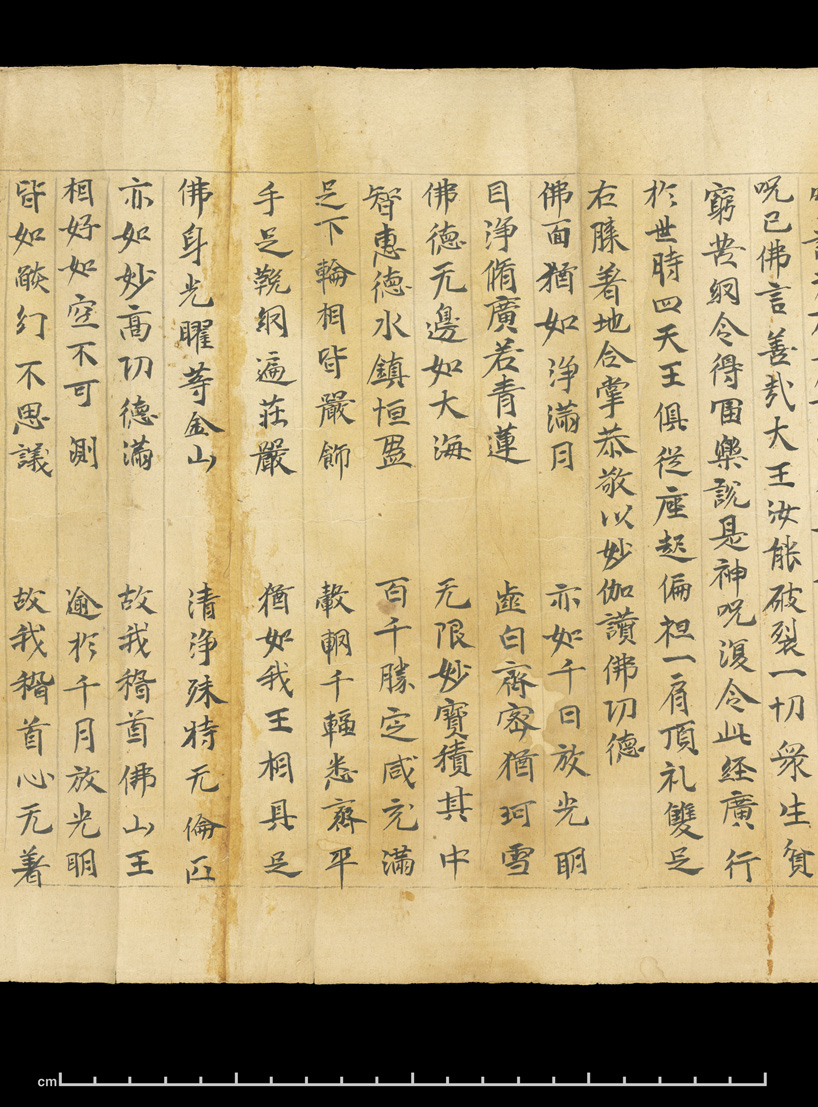 呪已佛言善哉大王汝能破裂一切衆生貧
窮苦網令得富樂說是神呪復令此經廣行
於世時四天王俱從座起偏袒一肩頂礼雙足
右膝著地合掌恭敬以妙伽讚佛功德
佛面猶如淨滿月　亦如千日放光明
目淨脩廣若青蓮　齒白齊密猶珂雪
佛德无邊如大海　无限妙寶積其中
智惠德水鎮恒盈　百千勝定咸充滿
足下輪相皆嚴飾　轂輞千輻悉齊平
手足鞔網遍莊嚴　猶如我王相具足
佛身光曜等金山　清淨殊特无倫匹
亦如妙高功德滿　故我稽首佛山王
相好如空不可測　逾於千月放光明
皆如燄幻不思議　故我稽首心无著